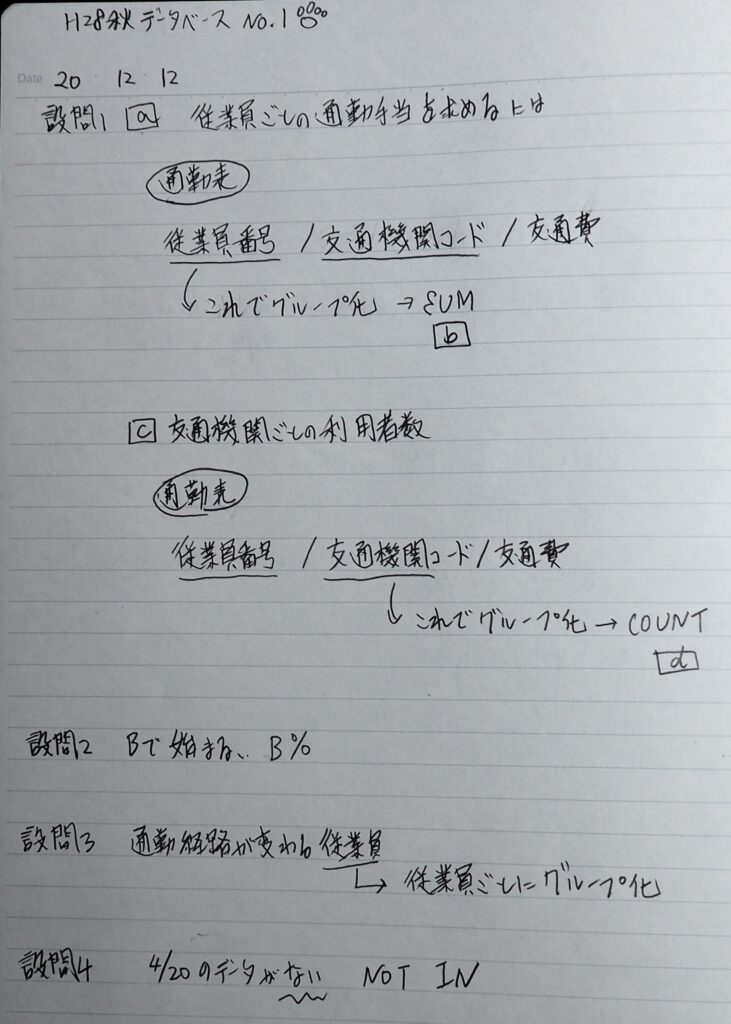 H28秋データベース No.1
Date 20 12 12
設問1 a 従業員ごとの通勤手当を求めるには
通勤表
従業員番号 / 交通機関コード / 交通費
これでグループ化 → SUM
b
c 交通機関ごとの利用者数
通勤表
従業員番号 / 交通機関コード / 交通費
これでグループ化 → COUNT
d
設問2 Bで始まる、B%
設問3 通勤経路が変わる従業員
従業員ごとにグループ化
設問4 4/20のデータがない NOT IN